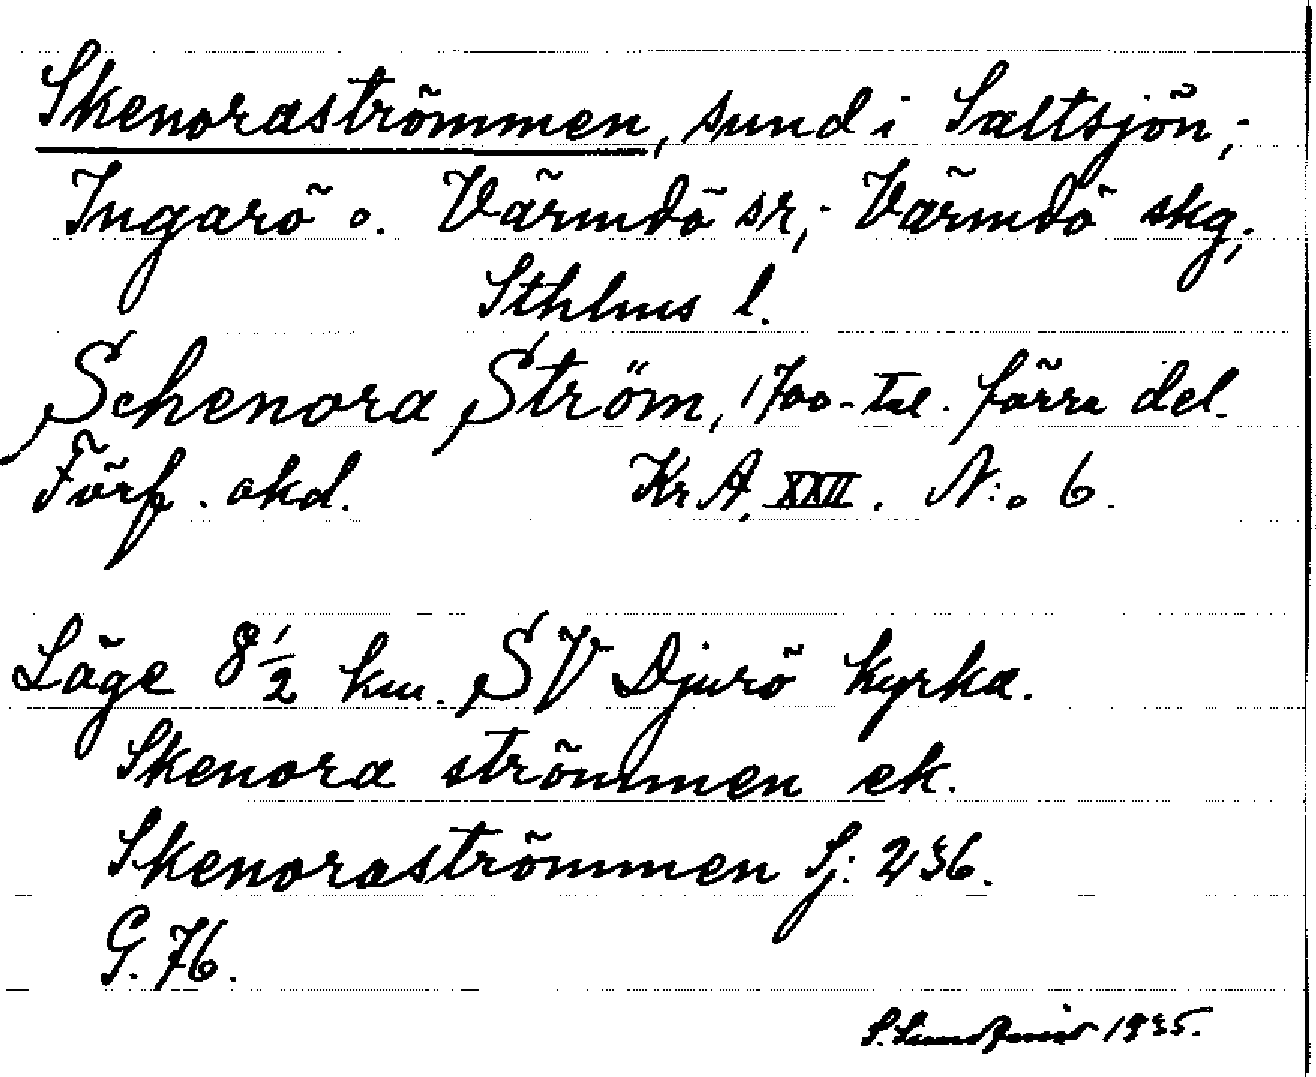 Skenoraströmmen, sund i Saltsjön;-
Ingarö o. Värmdö sr;- Värmdö skg;
Sthlms l.
Schenora Ström, 1700-tal. förra del.
Förf. okd. Kr A. XXII. N:o 6.
Läge 8 1/2 km. SV Djurö kyrka.
Skenora strömmen ek.
Skenoraströmmen Sj: 236.
G. 76.
S. Lundqvist 1935.